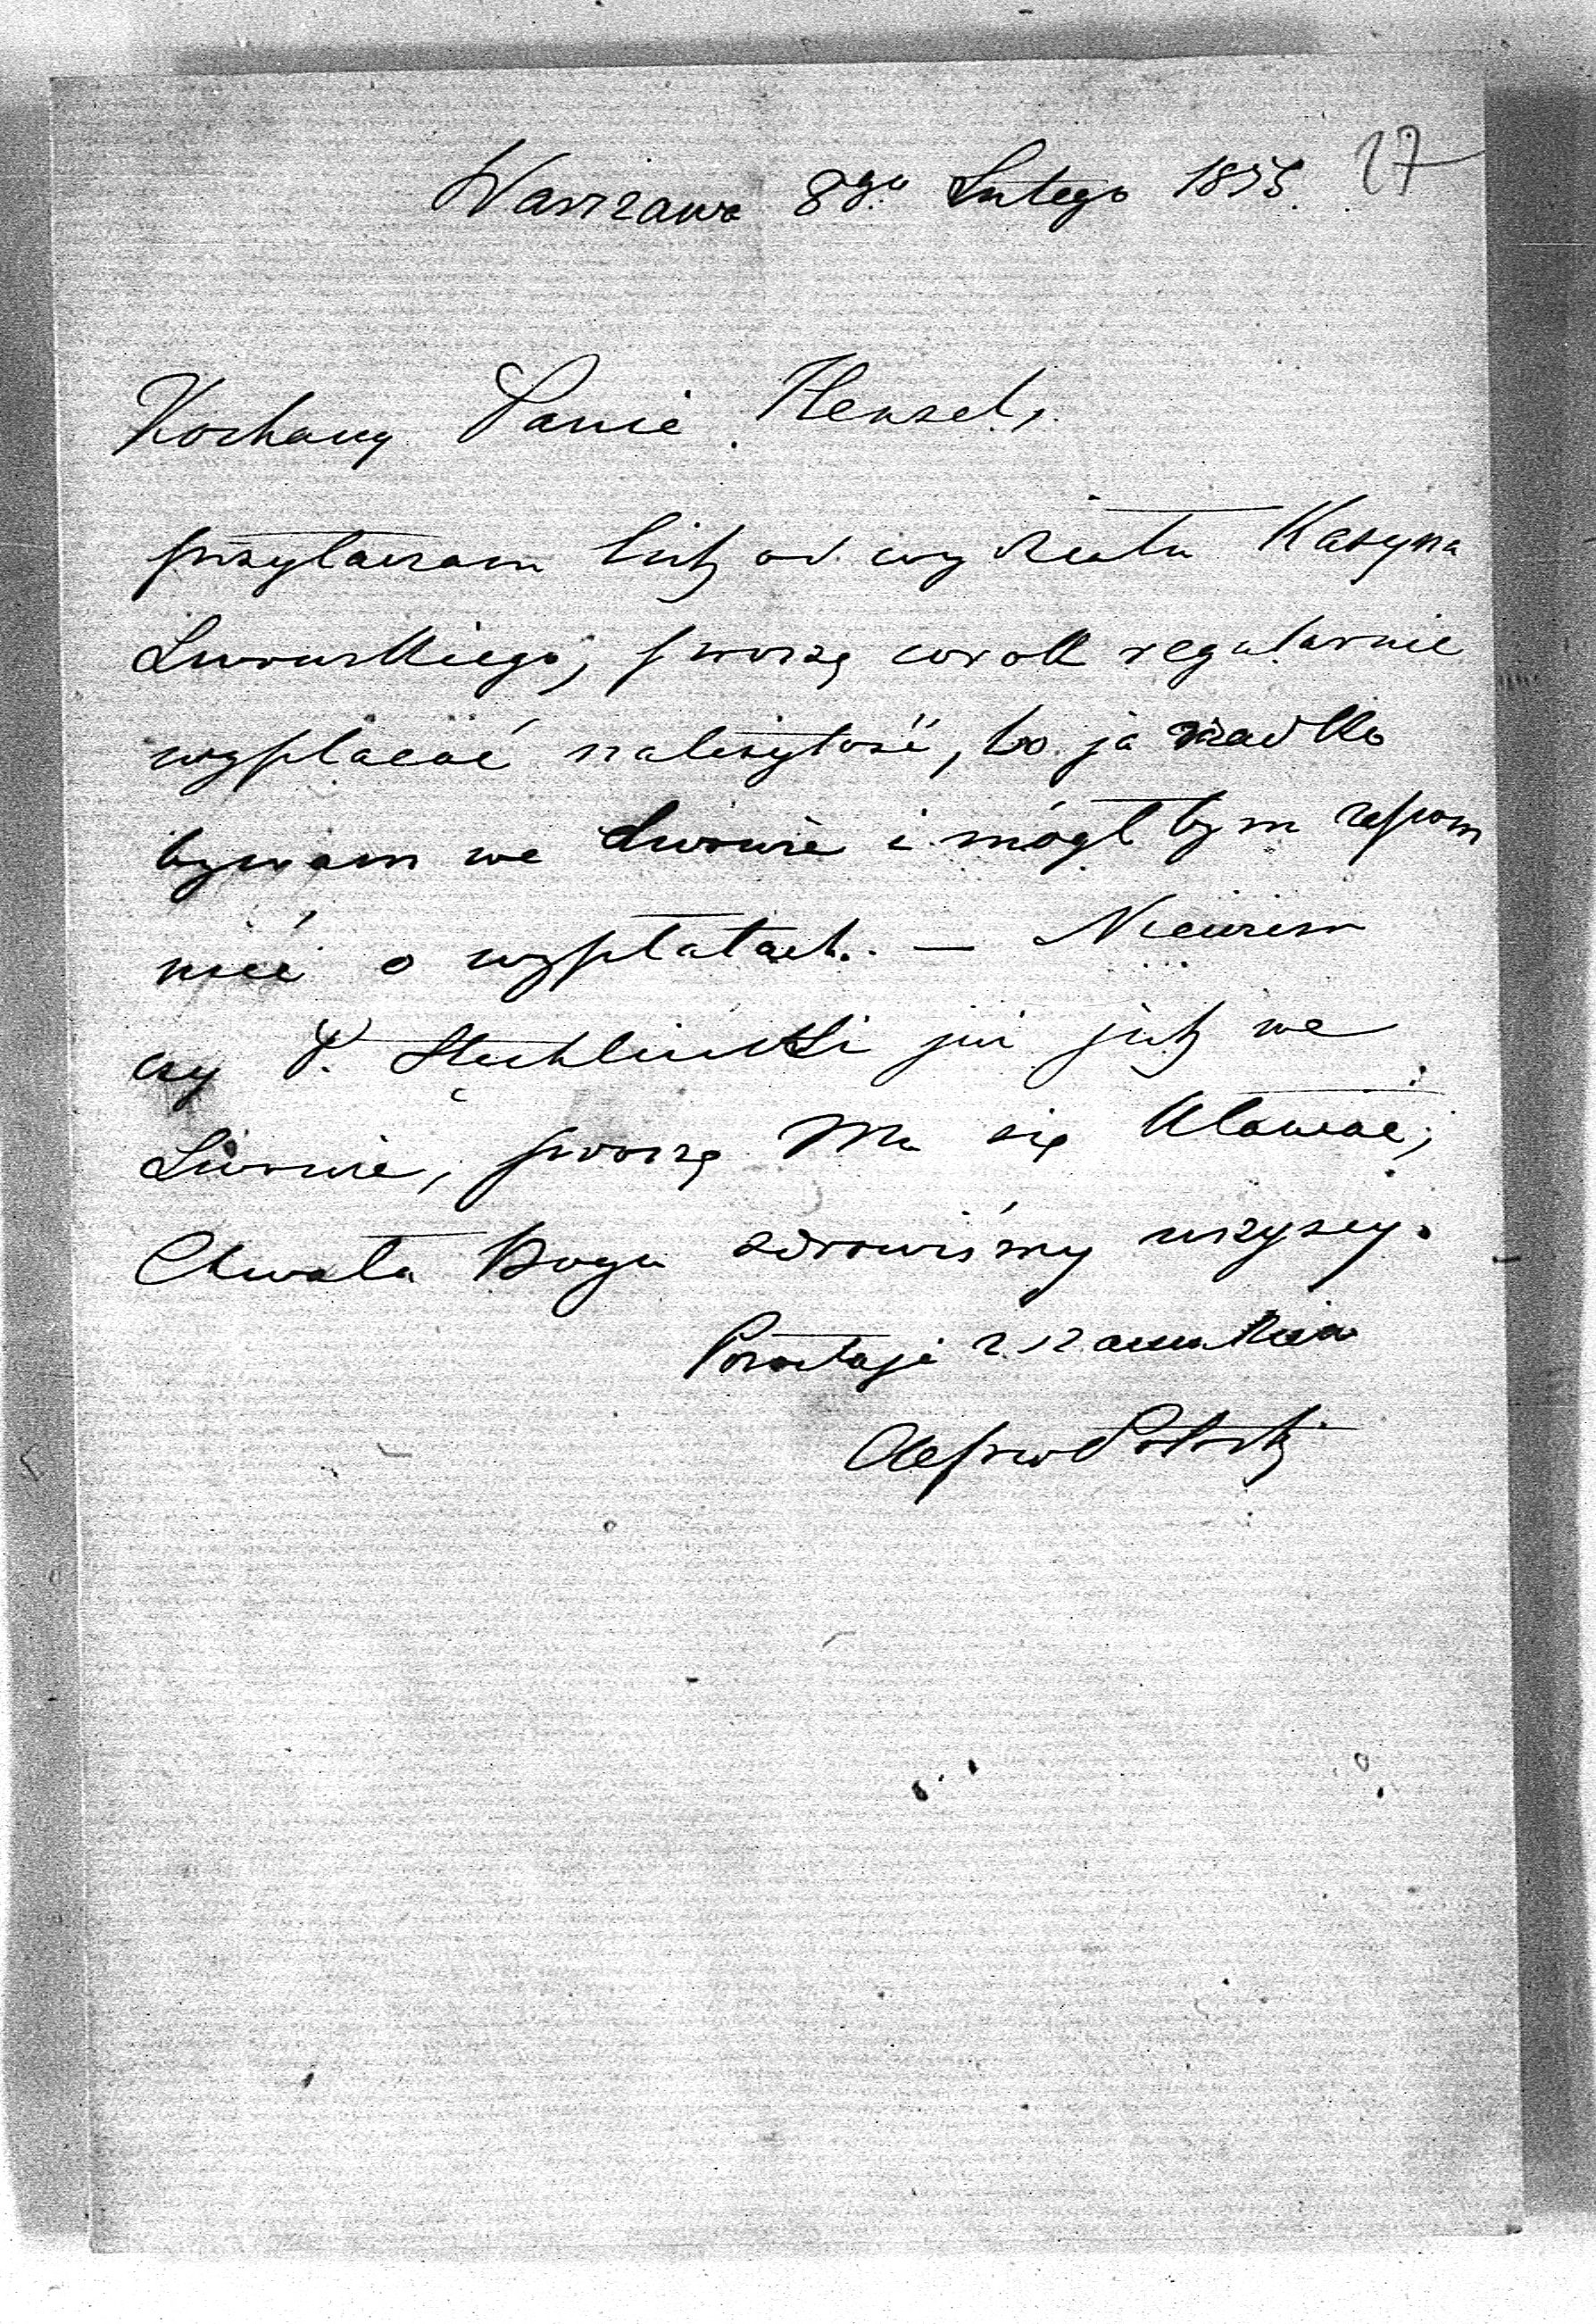 27
Warszawa 8go Lutego
Kochany Panie Hensel,
przyłączam list od wydziału Kasyna
Lwowskiego, proszę co rok regularnie
wypłacać należytość, bo ja rzadko
bywam we Lwowie i mógłbym zapom
nieć o wypłatach. — Niewiem
czy P. już jest we
Lwowie, proszę Mu się kłaniać;
Chwała Bogu zdrowiśmy wszyscy.
Pozostaję z szacunkiem
Alfred Potocki